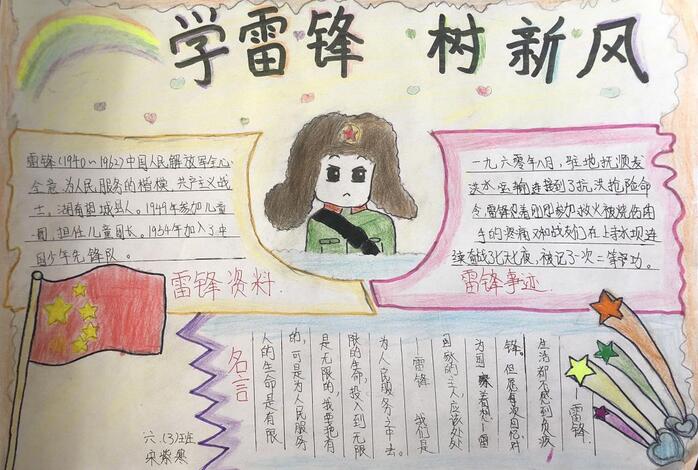 学雷锋 树新风
雷锋(1940~1962)中国人民解放军全心
全意为人民服务的楷模,共产主义战
士,湖南望城县人。1949年参加儿童
团,担任儿童团长。1954年加入了中
国少年先锋队。
雷锋资料
一九六零年八月,驻地抚顺发
洪水,运输连接到了抗洪抢险命
令,雷锋忍着刚刚参加救火被烧伤的
手的疼痛又和战友们在上寺水坝连
续奋战了七天七夜,被记了一次二等功。
雷锋事迹
名言
人的生命是有限
的,可是为人民服务
是无限的,我要把有
限的生命,投入到无限
为人民服务之中去。
—雷锋 我们是
国家的主人,应该处处
为国家着想—雷
锋。但愿每次回忆,对
生活都不感到负疚
—雷锋
六.(3)班
宋紫寒